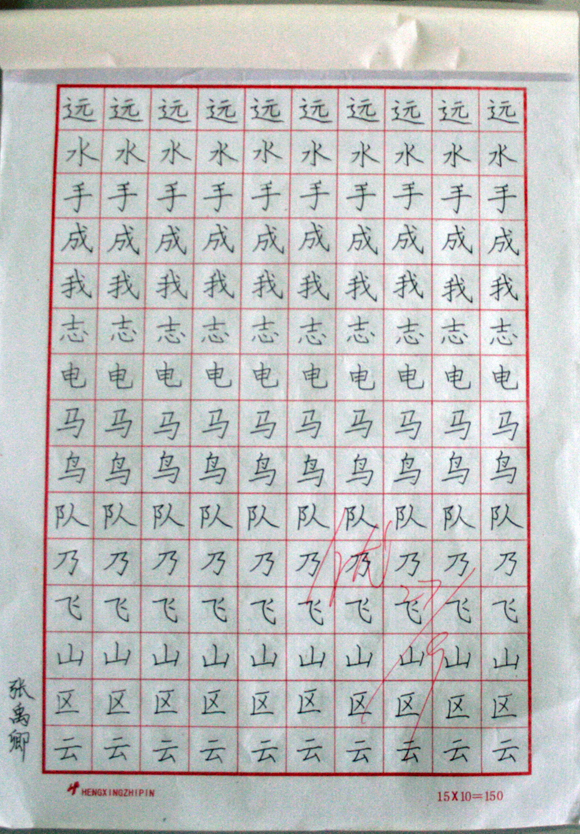 远远远远远远远远远远
水水水水水水水水水水
手手手手手手手手手手
成成成成成成成成成成
我我我我我我我我我我
志志志志志志志志志志
电电电电电电电电电电
马马马马马马马马马马
鸟鸟鸟鸟鸟鸟鸟鸟鸟鸟
队队队队队队队队队队
乃乃乃乃乃乃乃乃乃乃
飞飞飞飞飞飞飞飞飞飞
山山山山山山山山山山
区区区区区区区区区区
云云云云云云云云云云
张禹卿
优
HENGXINGZHIPIN
15X10=150